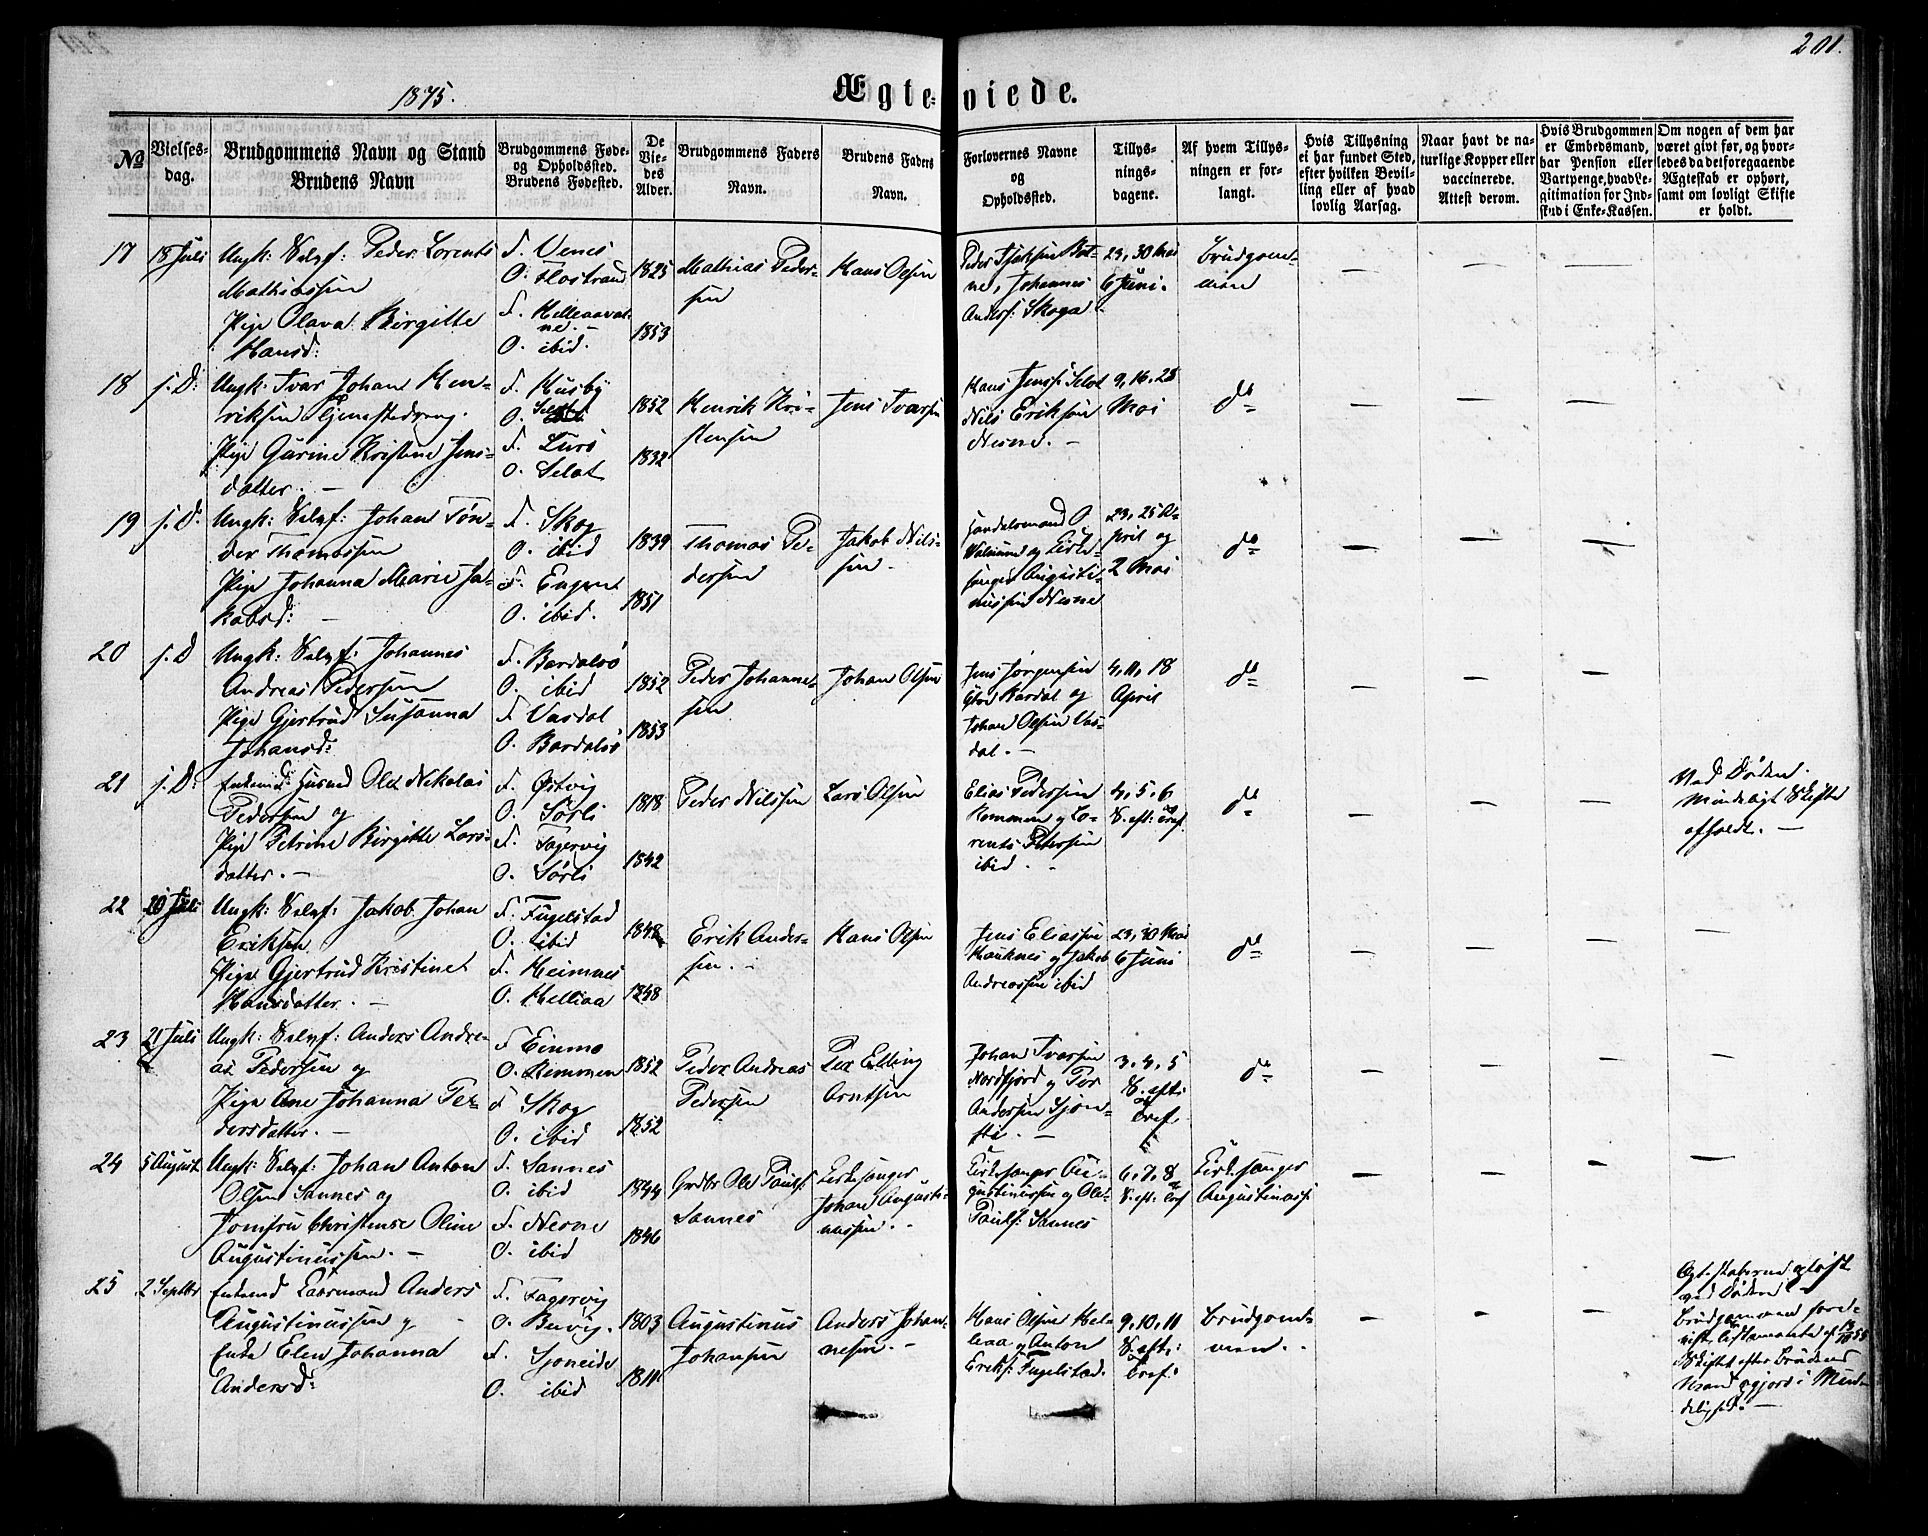 201.
1875.
Ægteviede.
№
Vielses-
dag.
Brudgommens Navn og Stand
Brudens Navn
Brudgommens Føde-
og Opholdssted.
Brudens Fødested.
De
Vie-
des
Alder.
Brudgommens Faders
Navn.
Brudens Faders
Navn.
Forlovernes Navne
og
Opholdssted.
Tillys-
nings-
dagene.
Af hvem Tillys-
ningen er for-
langt.
Hvis Tillysning
ei har fundet Sted,
efter hvilken Bevil-
ling eller af hvad
lovlig Aarsag.
Naar havt de na-
turlige Kopper eller
vaccinerede.
Attest derom.
Hvis Brudgommen
er Embedsmand,
har Pension eller
Vartpenge, hvad Le-
gitimation for Ind-
skud i Enke-Kassen.
Om nogen af dem har
været givt før, og hvor-
ledes da det foregaaende
Ægteskab er ophørt,
samt om lovligt Skifte
er holdt.
17
18 Juli
Ungk: Selvf: Peder Lorents
Mathiassen
Pige Olava Birgitte
Hansd:
F. Venes
O. Flostrand
F. Hellaavat-
ne. -
O. ibid.
1825
1853
Mathias Peder-
sen
Hans Olsen
Johannes
Anders: Skoga
23, 30 Mai
6 Juni.
Brudgom-
men
18
s. D:
Ungk: Ivar Johan Hen-
riksen Hjemstedreng.
Pige Gurine Kristine Jens-
datter. -
F. Husby
O. Selat
F. Lurø
O. Selat
1852
1832
Henrik Kri-
stensen
Jens Ivarsen
Hans Jenss: Selat
Nils Eriksen
Nesne. -
9, 16, 23
Mai
do
19
s. D.
Ungk: Selvf: Johan Tøn-
der Thomassen
Pige Johanna Marie Ja-
kobsd: -
F. Skog
O. ibid
F. Enge
O. ibid.
1839
1851
Thomas Pe-
dersen
Jakob Nils-
sen.
Handelsmand O
og Kirke-
sanger Augusti-
nussen Nesne
23, 25 A-
pril og
2 Mai
do
20
s. D
Ungk: Selvf: Johannes
Andreas Pedersen
Pige Gjertrud Susanna
Johansd:
F. Bardalsø
O. ibid
F. Vasdal
O. Bardalsø
1852
1853
Peder Johannes-
sen
Johan Olsen
Jens Jørgensen
Bardal og
Johan Olsen Vas-
dal. -
4, 11, 18
April
do
21
s. D:
Enkemd: Husmd Ole Nikolai
Pedersen og
Pige Petrine Birgitte Lars-
datter. -
F. Østvig
O. Sørli
F. Fagervig
O. Sørli
1818
1842
Peder Nilssen
Lars Olsen
Elias Pedersen
Remmen og Lo-
rents Petersen
ibid.
4, 5, 6
S. eft: Tref.
do
Ved Døden.
Mindeligt Skifte
afholdt. -
22
20 Juli
Ungk: Selvf: Jakob Johan
Eriksen
Pige Gjertrud Kristine
Hansdatter. -
F. Fugelstad
O. ibid
F. Heimnes
O. Hellaa
1848
1848
Erik Ander-
sen. -
Hans Olsen
Jens Eliassen
Hauknes og Jakob
Andreassen ibid
23, 30 Mai
6 Juni
do
23
21 Juli
Ungk: Selvf: Anders Andre-
as Pedersen og
Pige Ane Johanna Pe-
dersdatter. -
F Einmo
O. Remmen
F Skog
O. ibid
1852
1852
Peder Andreas
Pedersen
Per Elling
Arntsen
Johan Ivarsen
Nordfjord og Per
Andersen Sjøn-
sti. -
3, 4, 5
S. eft:
Tref.
do
24
5 August
Ungk: Selvf: Johan Anton
Olsen Sannes og
Jomfru Christense Oline
Augustinussen. -
F. Sannes
O. ibid
F. Nesne
O. ibid
1844
1846
Grdbr Ole Pauls:
Sannes
Kirkesanger
Johan Augusti-
nussen. -
Kirkesanger Au-
gustinussen og Ole
Pauls: Sannes
6, 7, 8
S. eft. Tref
Kirkesanger
Augustinuss:
25
2 Septbr
Enkemd Kaarmand Anders
Augustinussen og
Enke Elen Johanna
Andersd:
F. Fagervig
O. Buvig.
F. Sjoneide
O. ibid
1803
1811
Augustinus
Johansen
Anders Johan-
nesen. -
Hans Olsen Hel-
laa og Anton
Eriks: Fugelstad.
9, 10, 11
S. eft:
Tref:
Brudgom-
men.
Ægteskaberne opløst
ved Døden.
Brudgommen fore-
vist
Skiftet efter Brudens
Mand opgjort i Min-
delighed. -